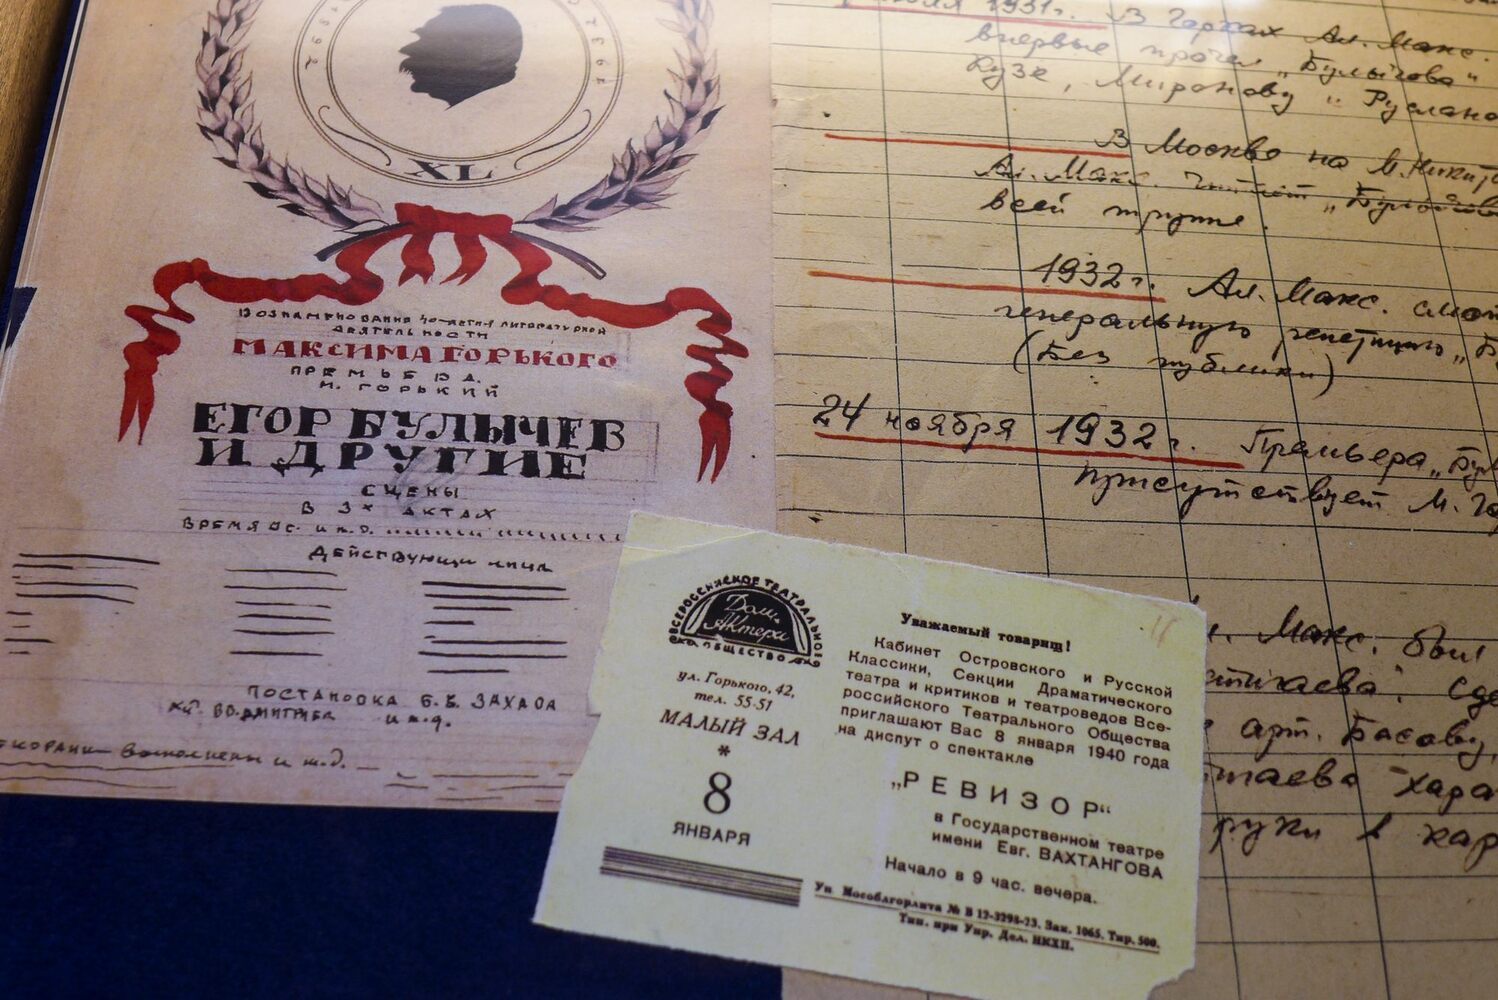 XL
ВОЗНАМЕНОВАНИЕ 40-ЛЕТИЯ ЛИТЕРАТУРНОЙ
ДЕЯТЕЛЬНОСТИ
МАКСИМА ГОРЬКОГО
ПРЕМЬЕРА
М. ГОРЬКИЙ
ЕГОР БУЛЫЧЕВ
И ДРУГИЕ
СЦЕНЫ
В 3х АКТАХ
ВРЕМЯ ДЕЙСТВ. и т.д.
ДЕЙСТВУЮЩИ лица
ПОСТАНОВКА Б.Е. ЗАХАВА
выполнены и т.д.
1931 г. В Горках Ал. Макс.
впервые прочел „Булычова"
Кузе, Миронову и Руслано
В Москве на М. Никит
Ал. Макс. читает „Булычова
всей труппе.
1932 г. Ал. Макс. смот
генеральную репетицию „Б
(Без публики)
24 ноября 1932 г. Премьера „Бул
присутствует М. Го
Макс. был
арт. Басову,
хара
руки в кар
ВСЕРОССИЙСКОЕ ТЕАТРАЛЬНОЕ
ОБЩЕСТВО
Дом
Актера
ул. Горького, 42,
тел. 55-51
МАЛЫЙ ЗАЛ
*
8
ЯНВАРЯ
Уважаемый товарищ!
Кабинет Островского и Русской
Классики, Секции Драматического
театра и критиков и театроведов Все-
российского Театрального Общества
приглашают Вас 8 января 1940 года
на диспут о спектакле
„РЕВИЗОР"
в Государственном театре
имени Евг. ВАХТАНГОВА
Начало в 9 час. вечера.
Уп. Мособлгорлита № В 12-3298-23. Зак. 1065. Тир. 500.
Тип. при Упр. Дел. НКХП.